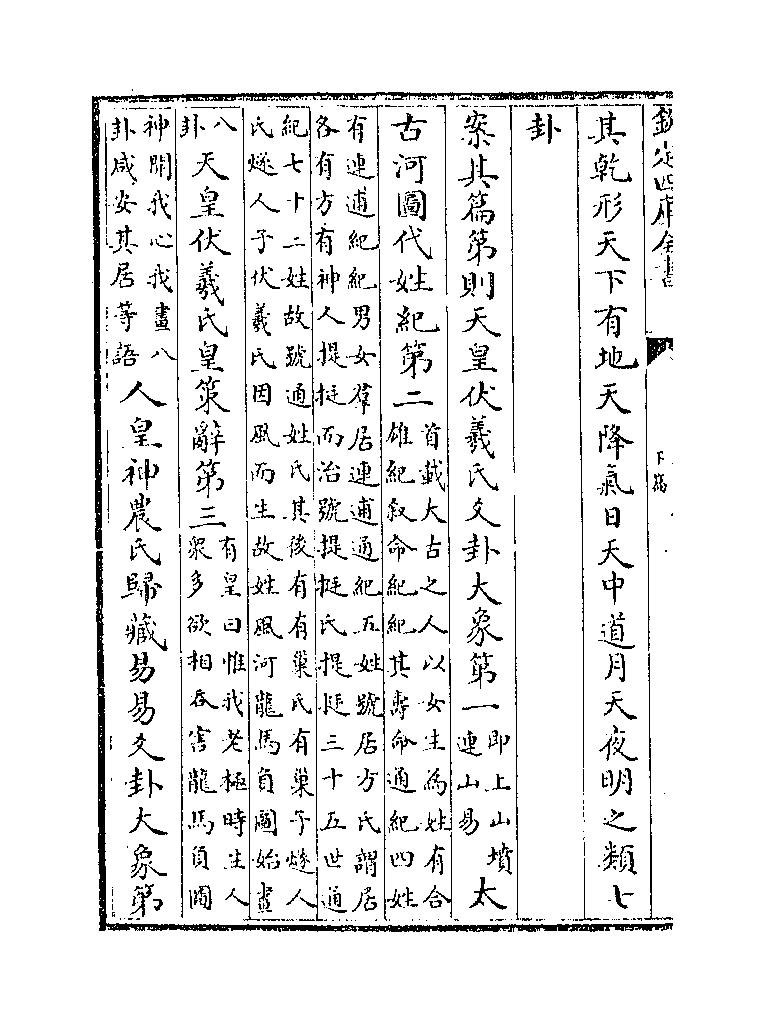 欽定四庫全書
下篇
其乾形天下有地天降氣日天中道月天夜明之類七
卦
案其篇第則天皇伏羲氏爻卦大象第一
即上山墳
連山易
太
古河圖代姓紀第二
首載大古之人以女生為姓有合
雄紀叙命紀紀其壽命通紀四姓
有連逋紀紀男女羣居連逋通紀五姓號居方氏謂居
各有方有神人提挺而治號提挺氏提挺三十五世通
紀七十二姓故號通姓氏其後有有巢氏有巢子燧人
氏燧人子伏羲氏因風而生故姓風河龍馬負圖始畫
八
卦
天皇伏羲氏皇策辭第三
有皇曰惟我老極時生人
衆多欲相吞害龍馬負圖
神開我心我畫八
卦咸安其居等語
人皇神農氏歸藏易易爻卦大象第